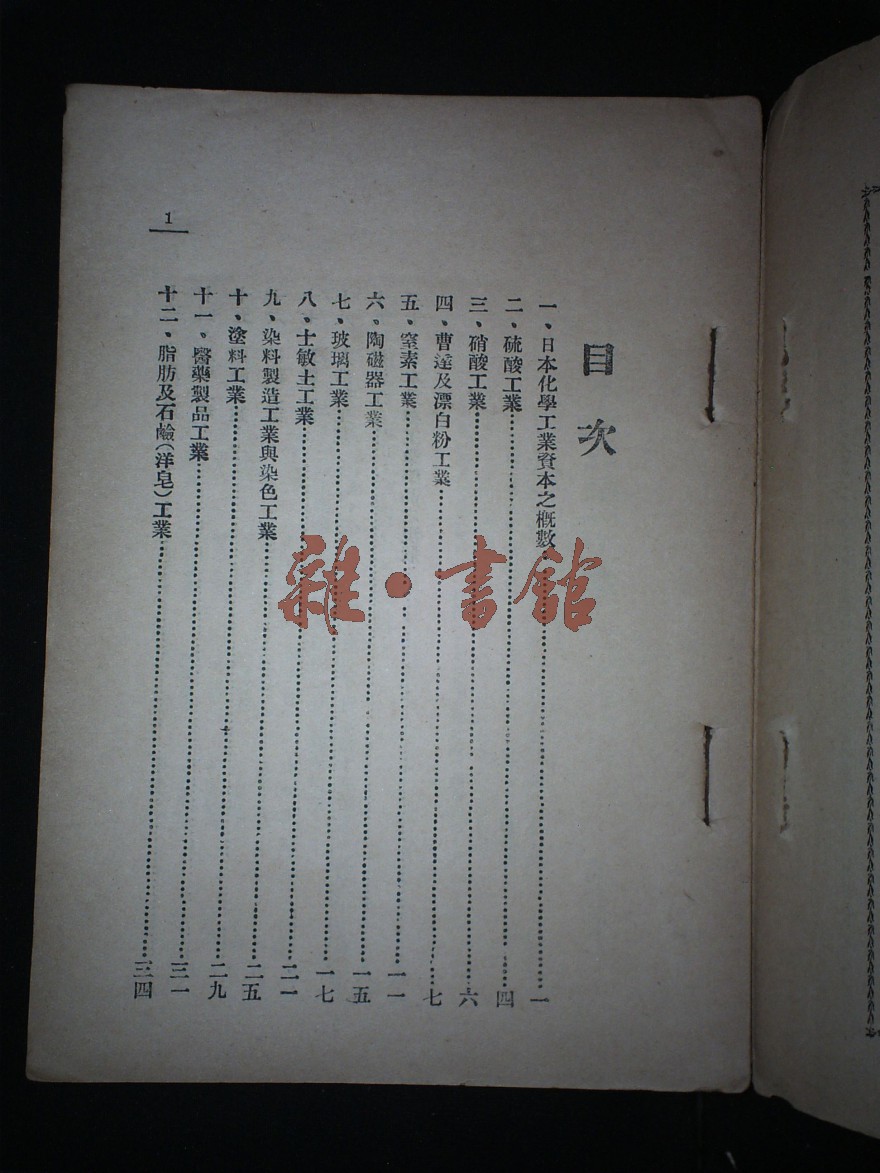 目次
一、日本化學工業資本之概數……一
二、硫酸工業……四
三、硝酸工業……六
四、曹達及漂白粉工業……七
五、窒素工業……一一
六、陶磁器工業……一五
七、玻璃工業……一七
八、士敏土工業……二一
九、染料製造工業與染色工業……二五
十、塗料工業……二九
十一、醫藥製品工業……三一
十二、脂肪及石鹼(洋皂)工業……三四
1
雜·書館